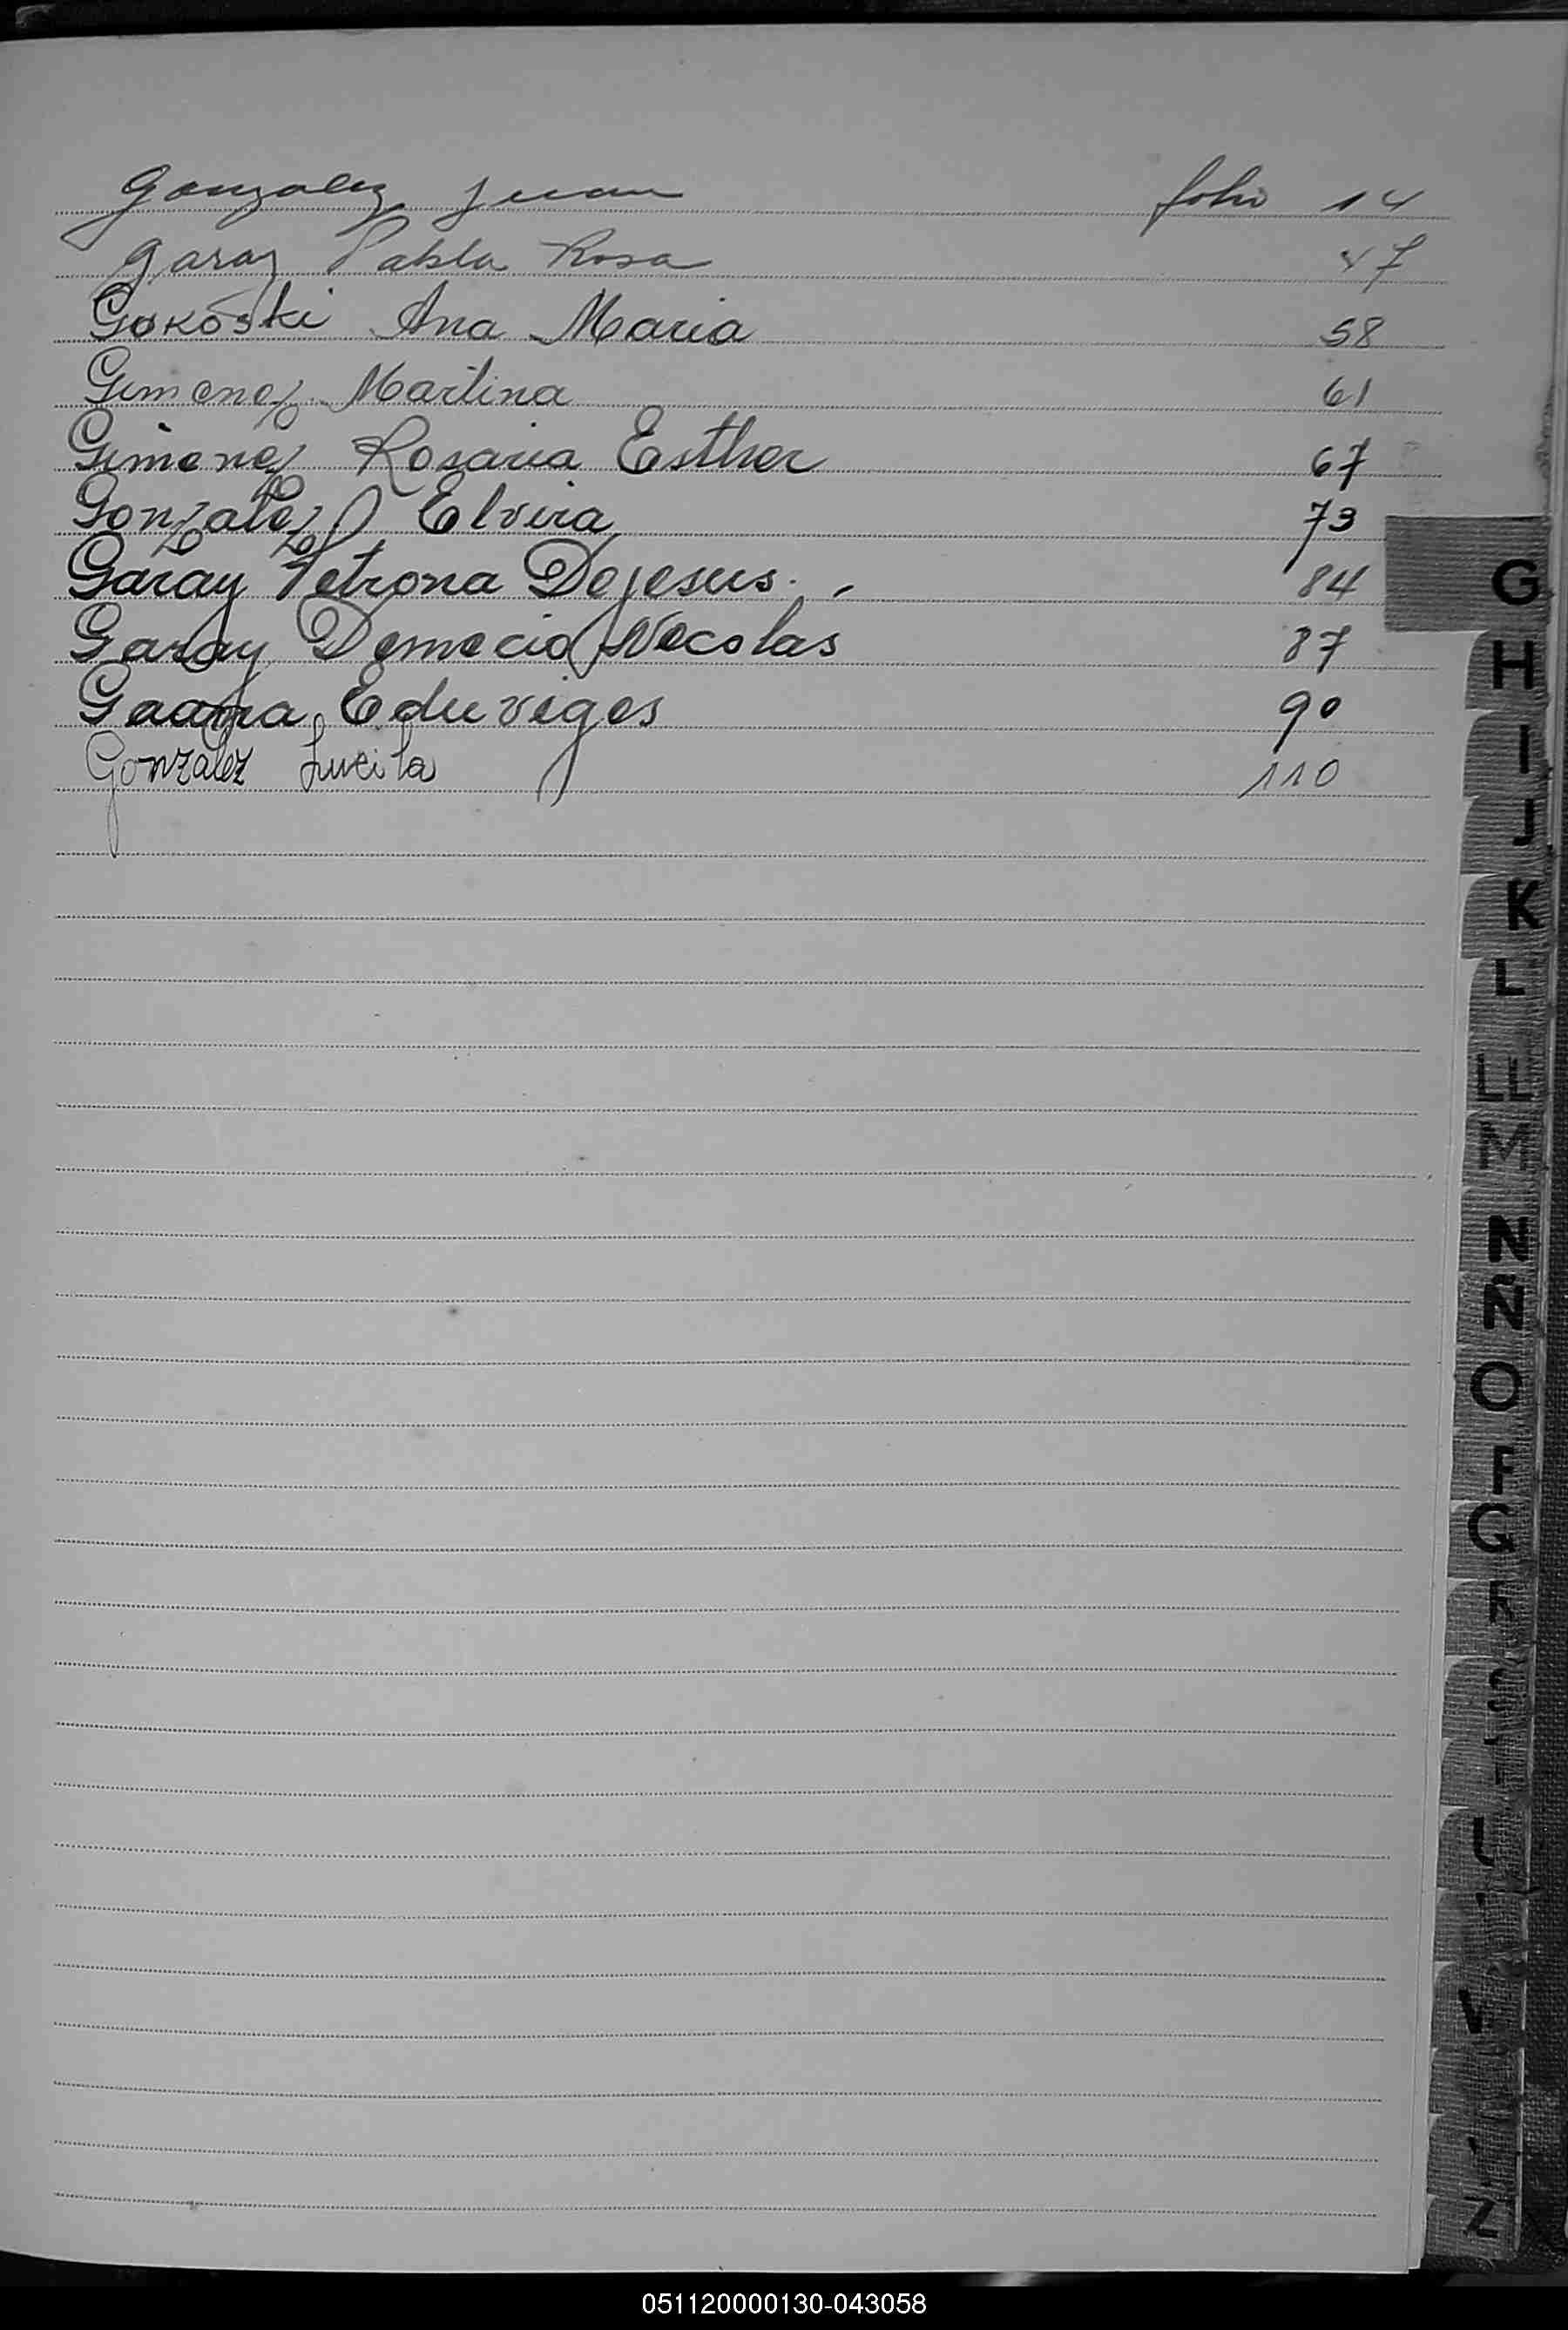 Gonzalez Juan folio 14
Garay Pabla Rosa 47
Gokoski Ana Maria 58
Gimenez Martina 61
Gimenez Rosaria Esther 67
Gonzalez Elvira 73
Garay Petrona Dejesus. - 84
Garay Demecio Nicolas 87
Gaona Eduviges 90
Gonzalez Lucila 110
G
H
I
J
K
L
LL
M
N
Ñ
O
P
Q
R
S
V
Z
051120000130-043058